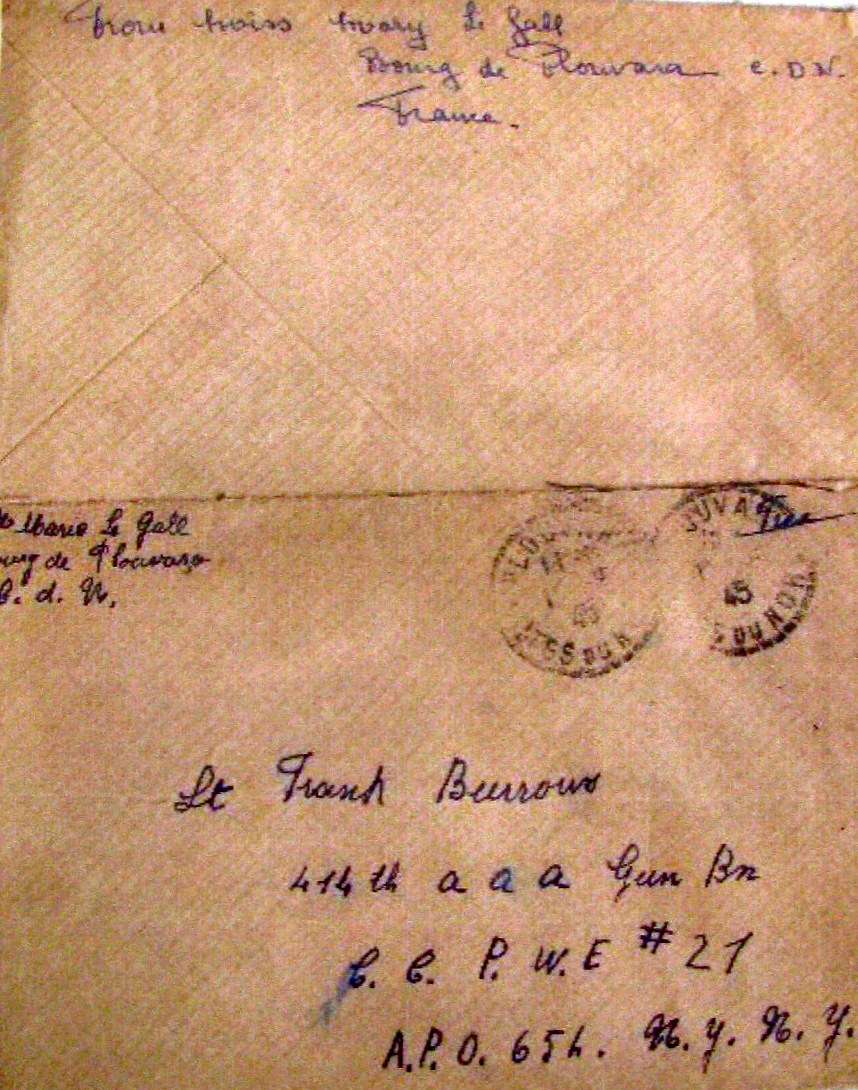 From Miss Mary Le Gall
Bourg de Plouvara C.D.N.
France.
Marie Le Gall
Bourg de Plouvara
C. d. N.
PLOU
45
UVA
45
S DU NOR
Lt Frank Burrows
414th a a a Gun Bn
C. C. P. W. E # 21
A.P.O. 654. N. y. N. y.